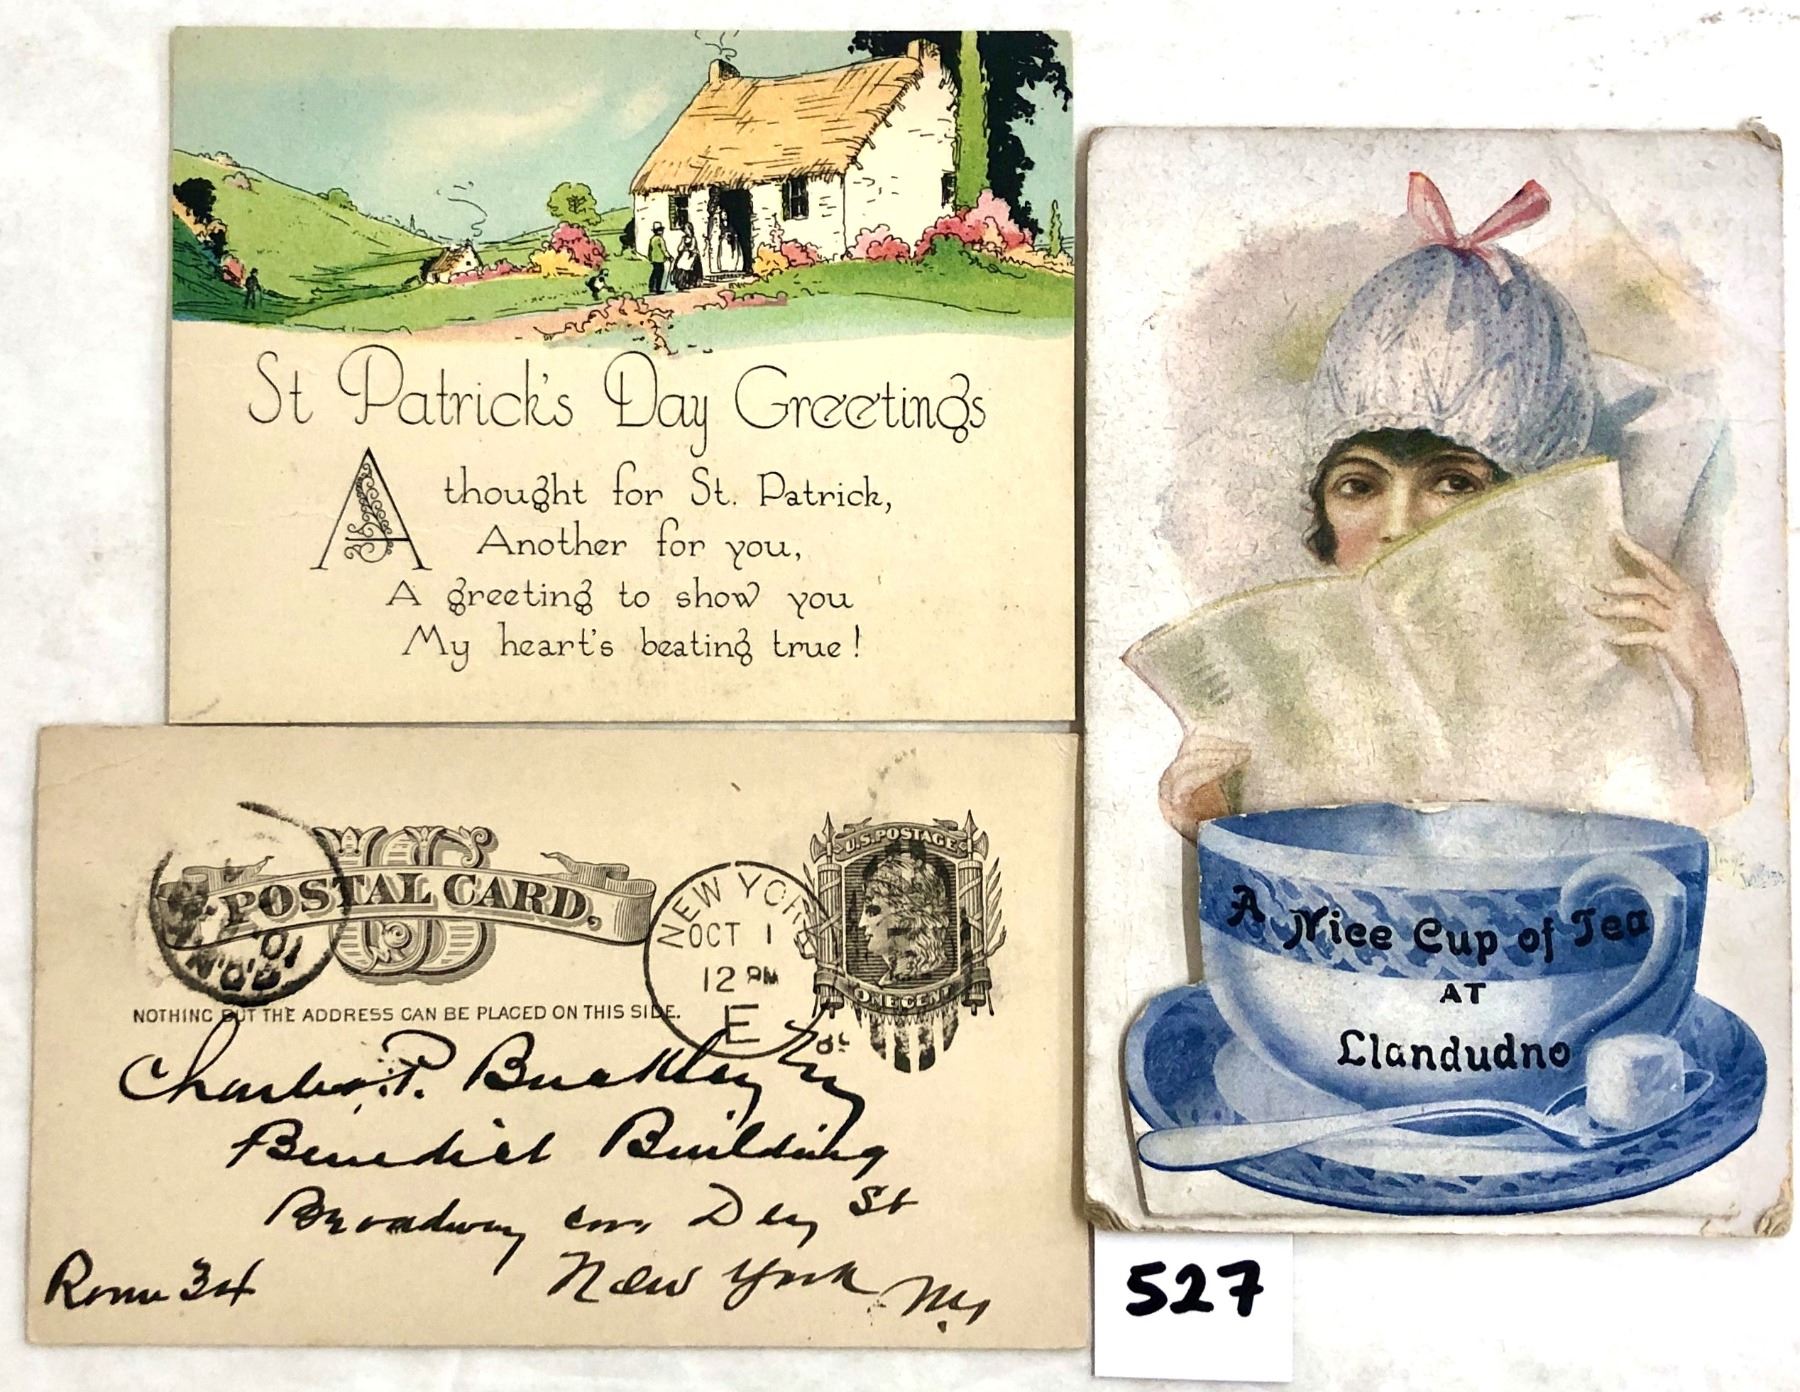 St Patrick's Day Greetings
A thought for St. Patrick,
Another for you,
A greeting to show you
My heart's beating true!
US
POSTAL CARD.
NOTHING BUT THE ADDRESS CAN BE PLACED ON THIS SIDE.
NEW YORK
OCT 1
12 PM
E
U.S. POSTAGE
ONE CENT
Charles P. Buckley
Benedict Building
Broadway cor. Dey St
New York
Room 34
A Nice Cup of Tea
AT
Llandudno
527